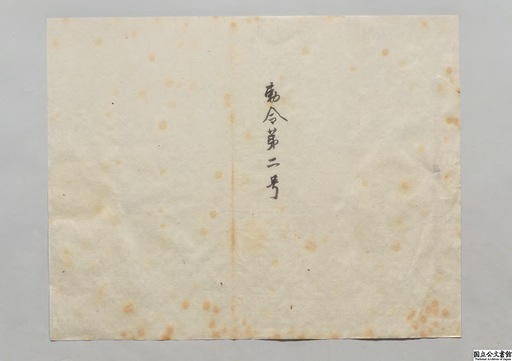 勅令第二号
国立公文書館
National Archives of Japan